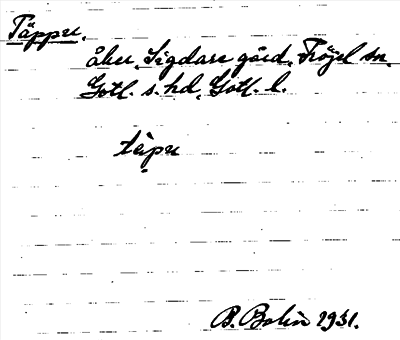 Täppu.
åker, Sigdare gård, Fröjel sn,
Gotl. s. hd, Gotl. l.
tạ̈pu
B. Bolin 1931.